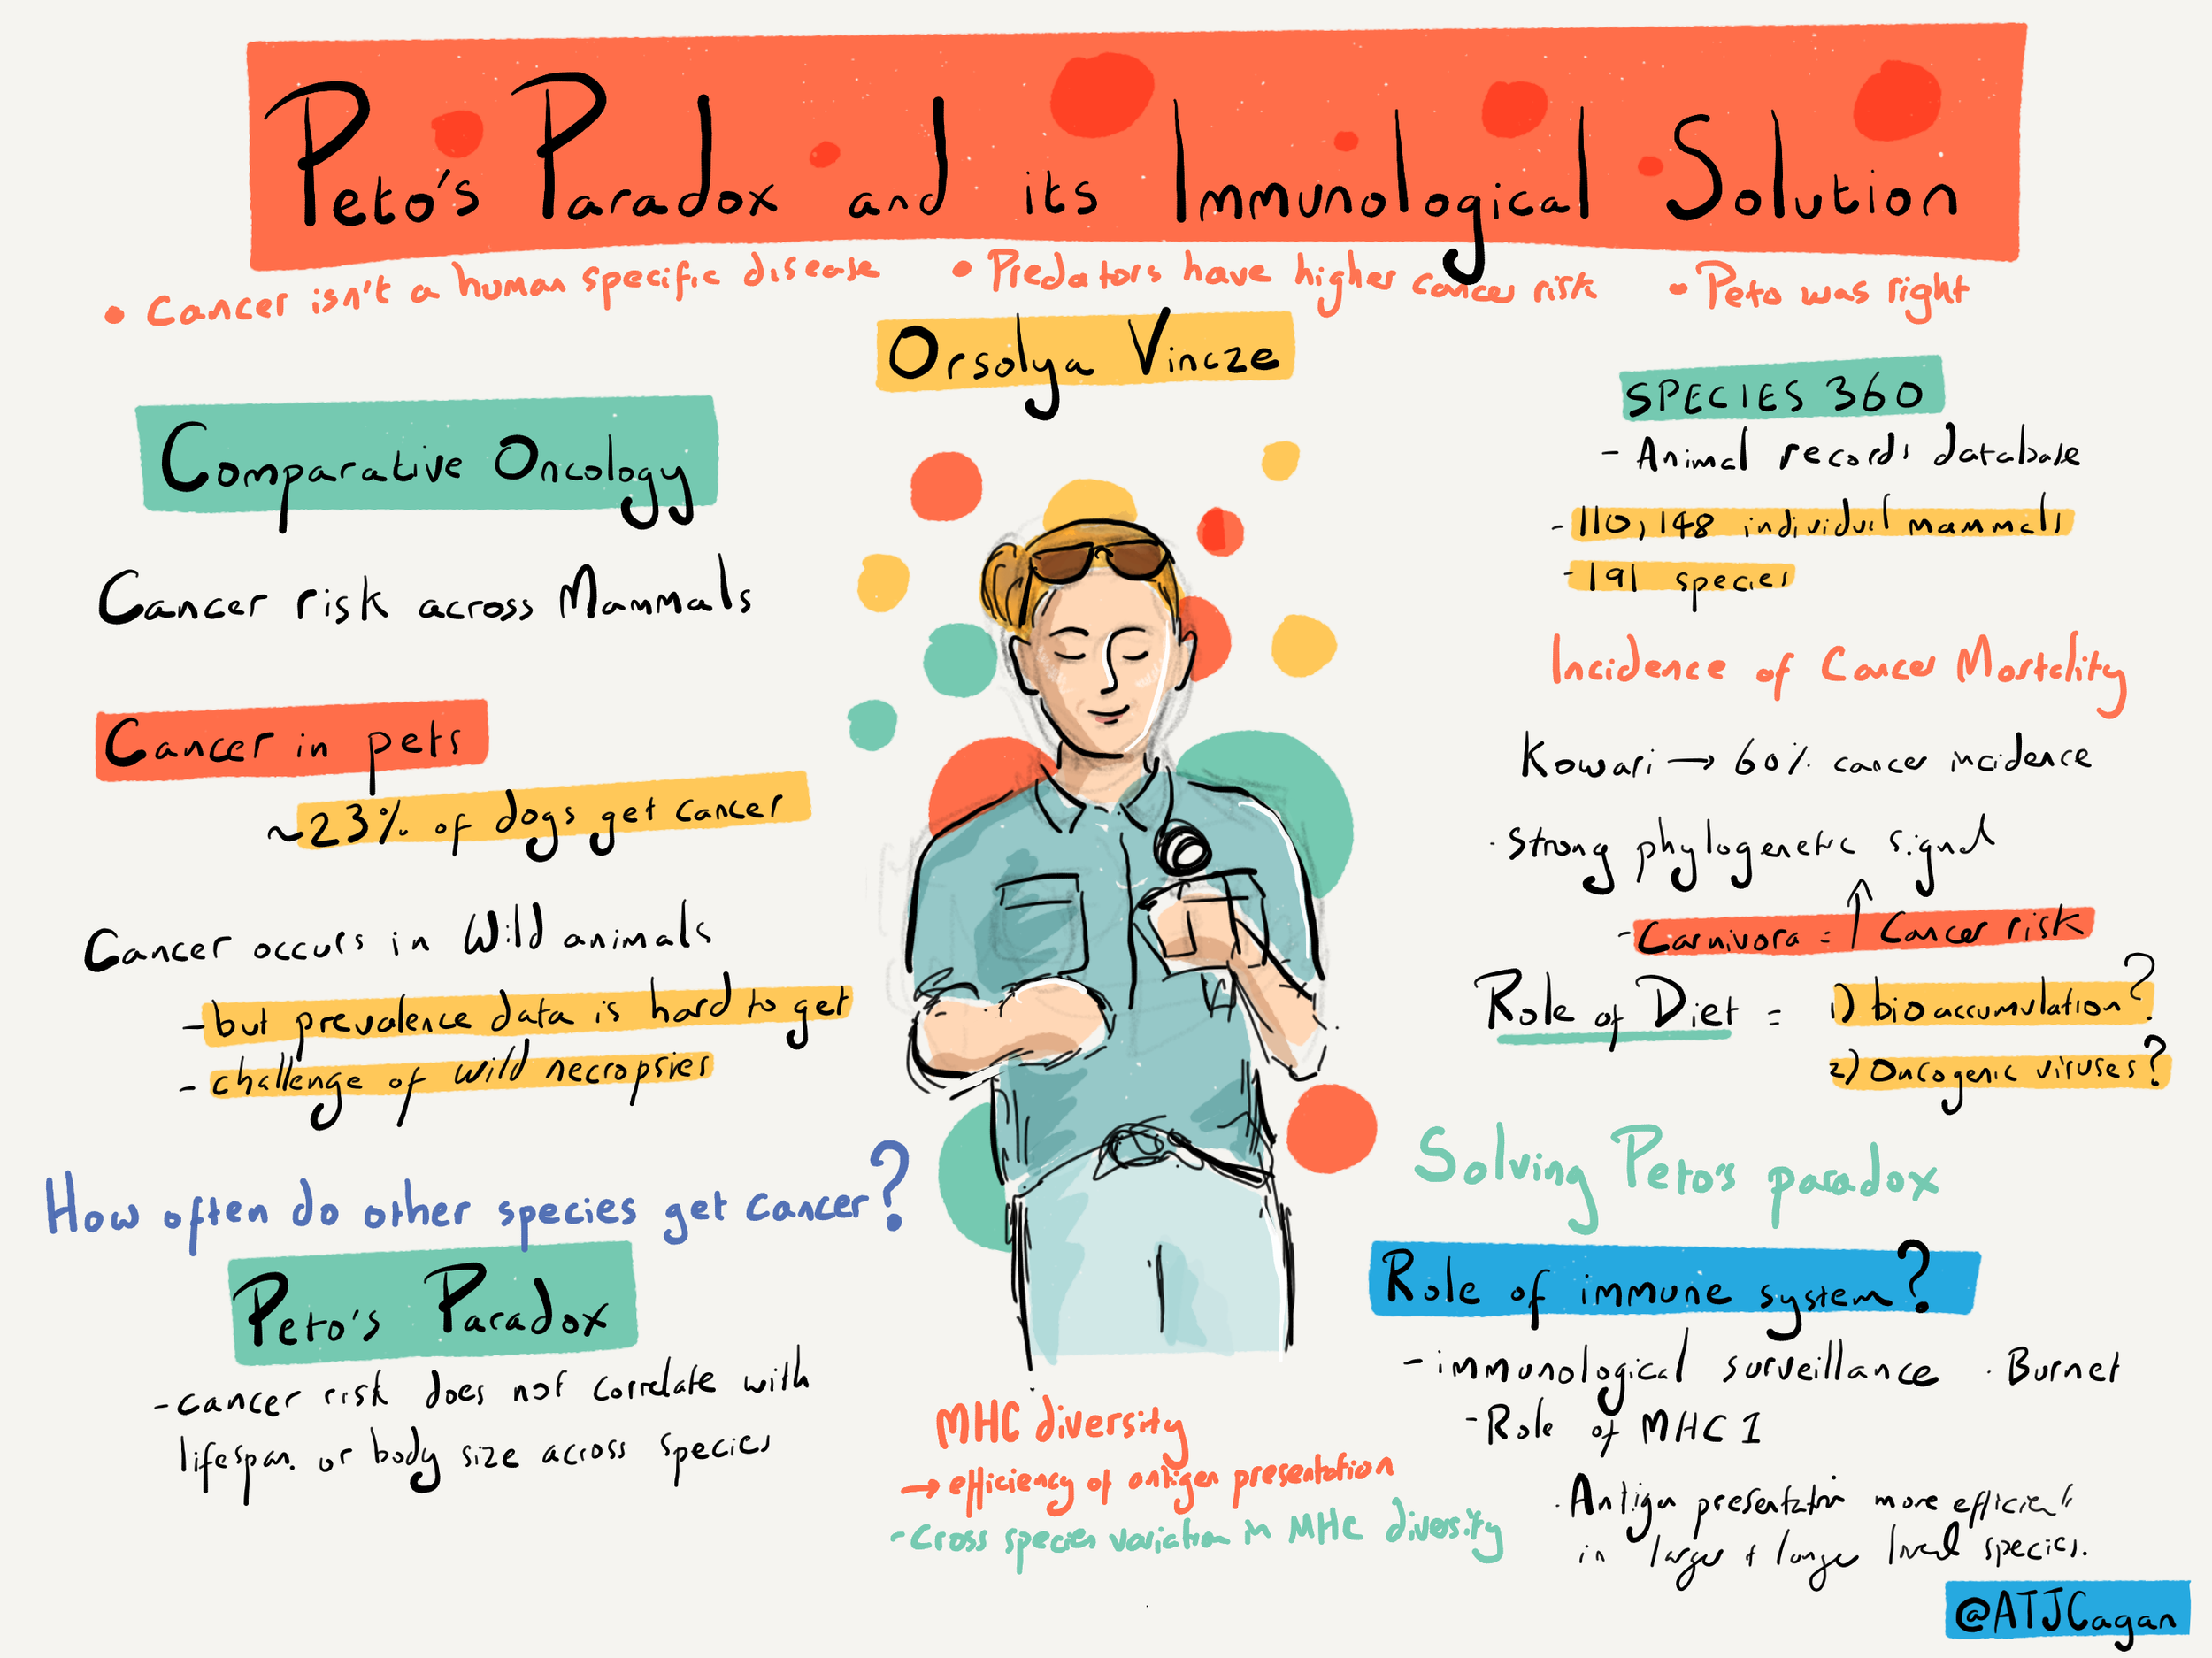 Peto's Paradox and its Immunological Solution
• Cancer isn't a human specific disease • Predators have higher cancer risk • Peto was right
Orsolya Vincze
Comparative Oncology
Cancer risk across Mammals
Cancer in pets
~23% of dogs get cancer
Cancer occurs in Wild animals
- but prevalence data is hard to get
- challenge of wild necropsies
How often do other species get cancer?
Peto's Paradox
- cancer risk does not correlate with
lifespan or body size across species
MHC diversity
→ efficiency of antigen presentation
- Cross species variation in MHC diversity
SPECIES 360
- Animal records database
- 110,148 individual mammals
- 191 species
Incidence of Cancer Mortality
Kowari → 60% cancer incidence
· Strong phylogenetic signal
- Carnivora = ↑ Cancer risk
Role of Diet = 1) bioaccumulation?
2) Oncogenic viruses?
Solving Peto's paradox
Role of immune system?
- immunological surveillance · Burnet
- Role of MHC 1
· Antigen presentation more efficient
in larger + longer lived species.
@ATJCagan